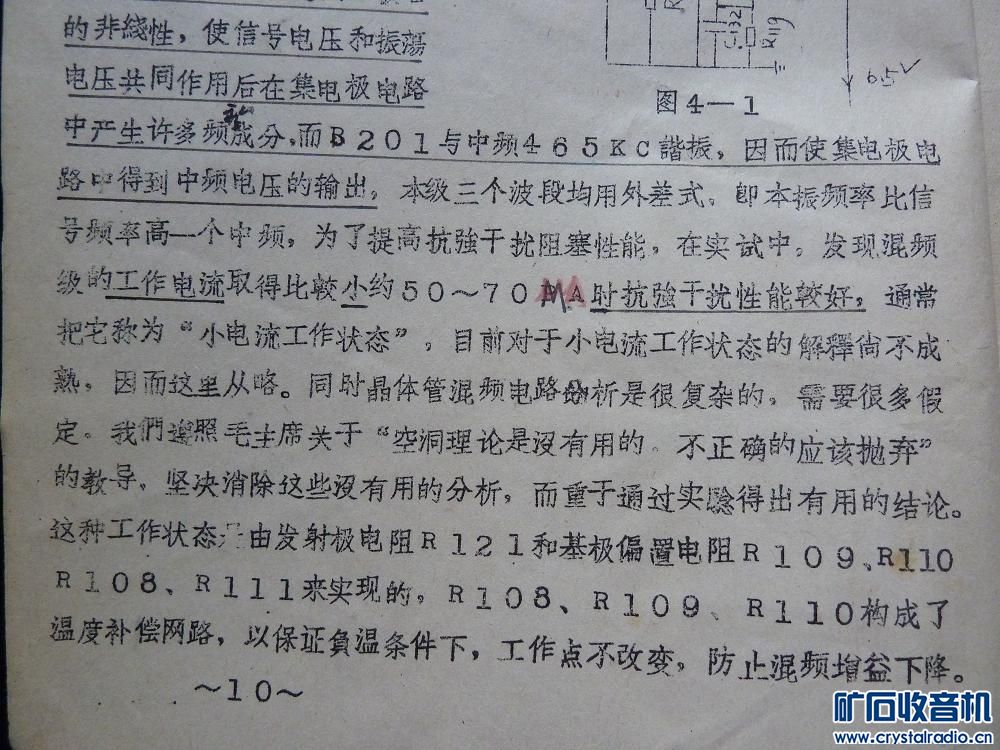 的非綫性，使信号电压和振蕩
电压共同作用后在集电极电路
中产生许多频率成分，而B201与中频465KC諧振，因而使集电极电
路中得到中频电压的输出。本级三个波段均用外差式。即本振频率比信
号频率高一个中频，为了提高抗強干扰阻塞性能，在实试中。发现混频
级的工作电流取得比較小约50～70MA时抗強干扰性能較好，通常
把它称为“小电流工作状态”。目前对于小电流工作状态的解釋尙不成
熟，因而这里从略。同时晶体管混频电路分析是很复杂的，需要很多假
定。我們遵照毛主席关于“空洞理论是沒有用的。不正确的应该抛弃”
的教导，坚决消除这些沒有用的分析，而重于通过实驗得出有用的结论。
这种工作状态是由发射极电阻R121和基极偏置电阻R109、R110
R108、R111来实现的，R108、R109、R110构成了
温度补偿网路，以保证負温条件下，工作点不改变，防止混频增益下降。
～10～
图4—1
C132
R119
6.5V
矿石收音机
www.crystalradio.cn